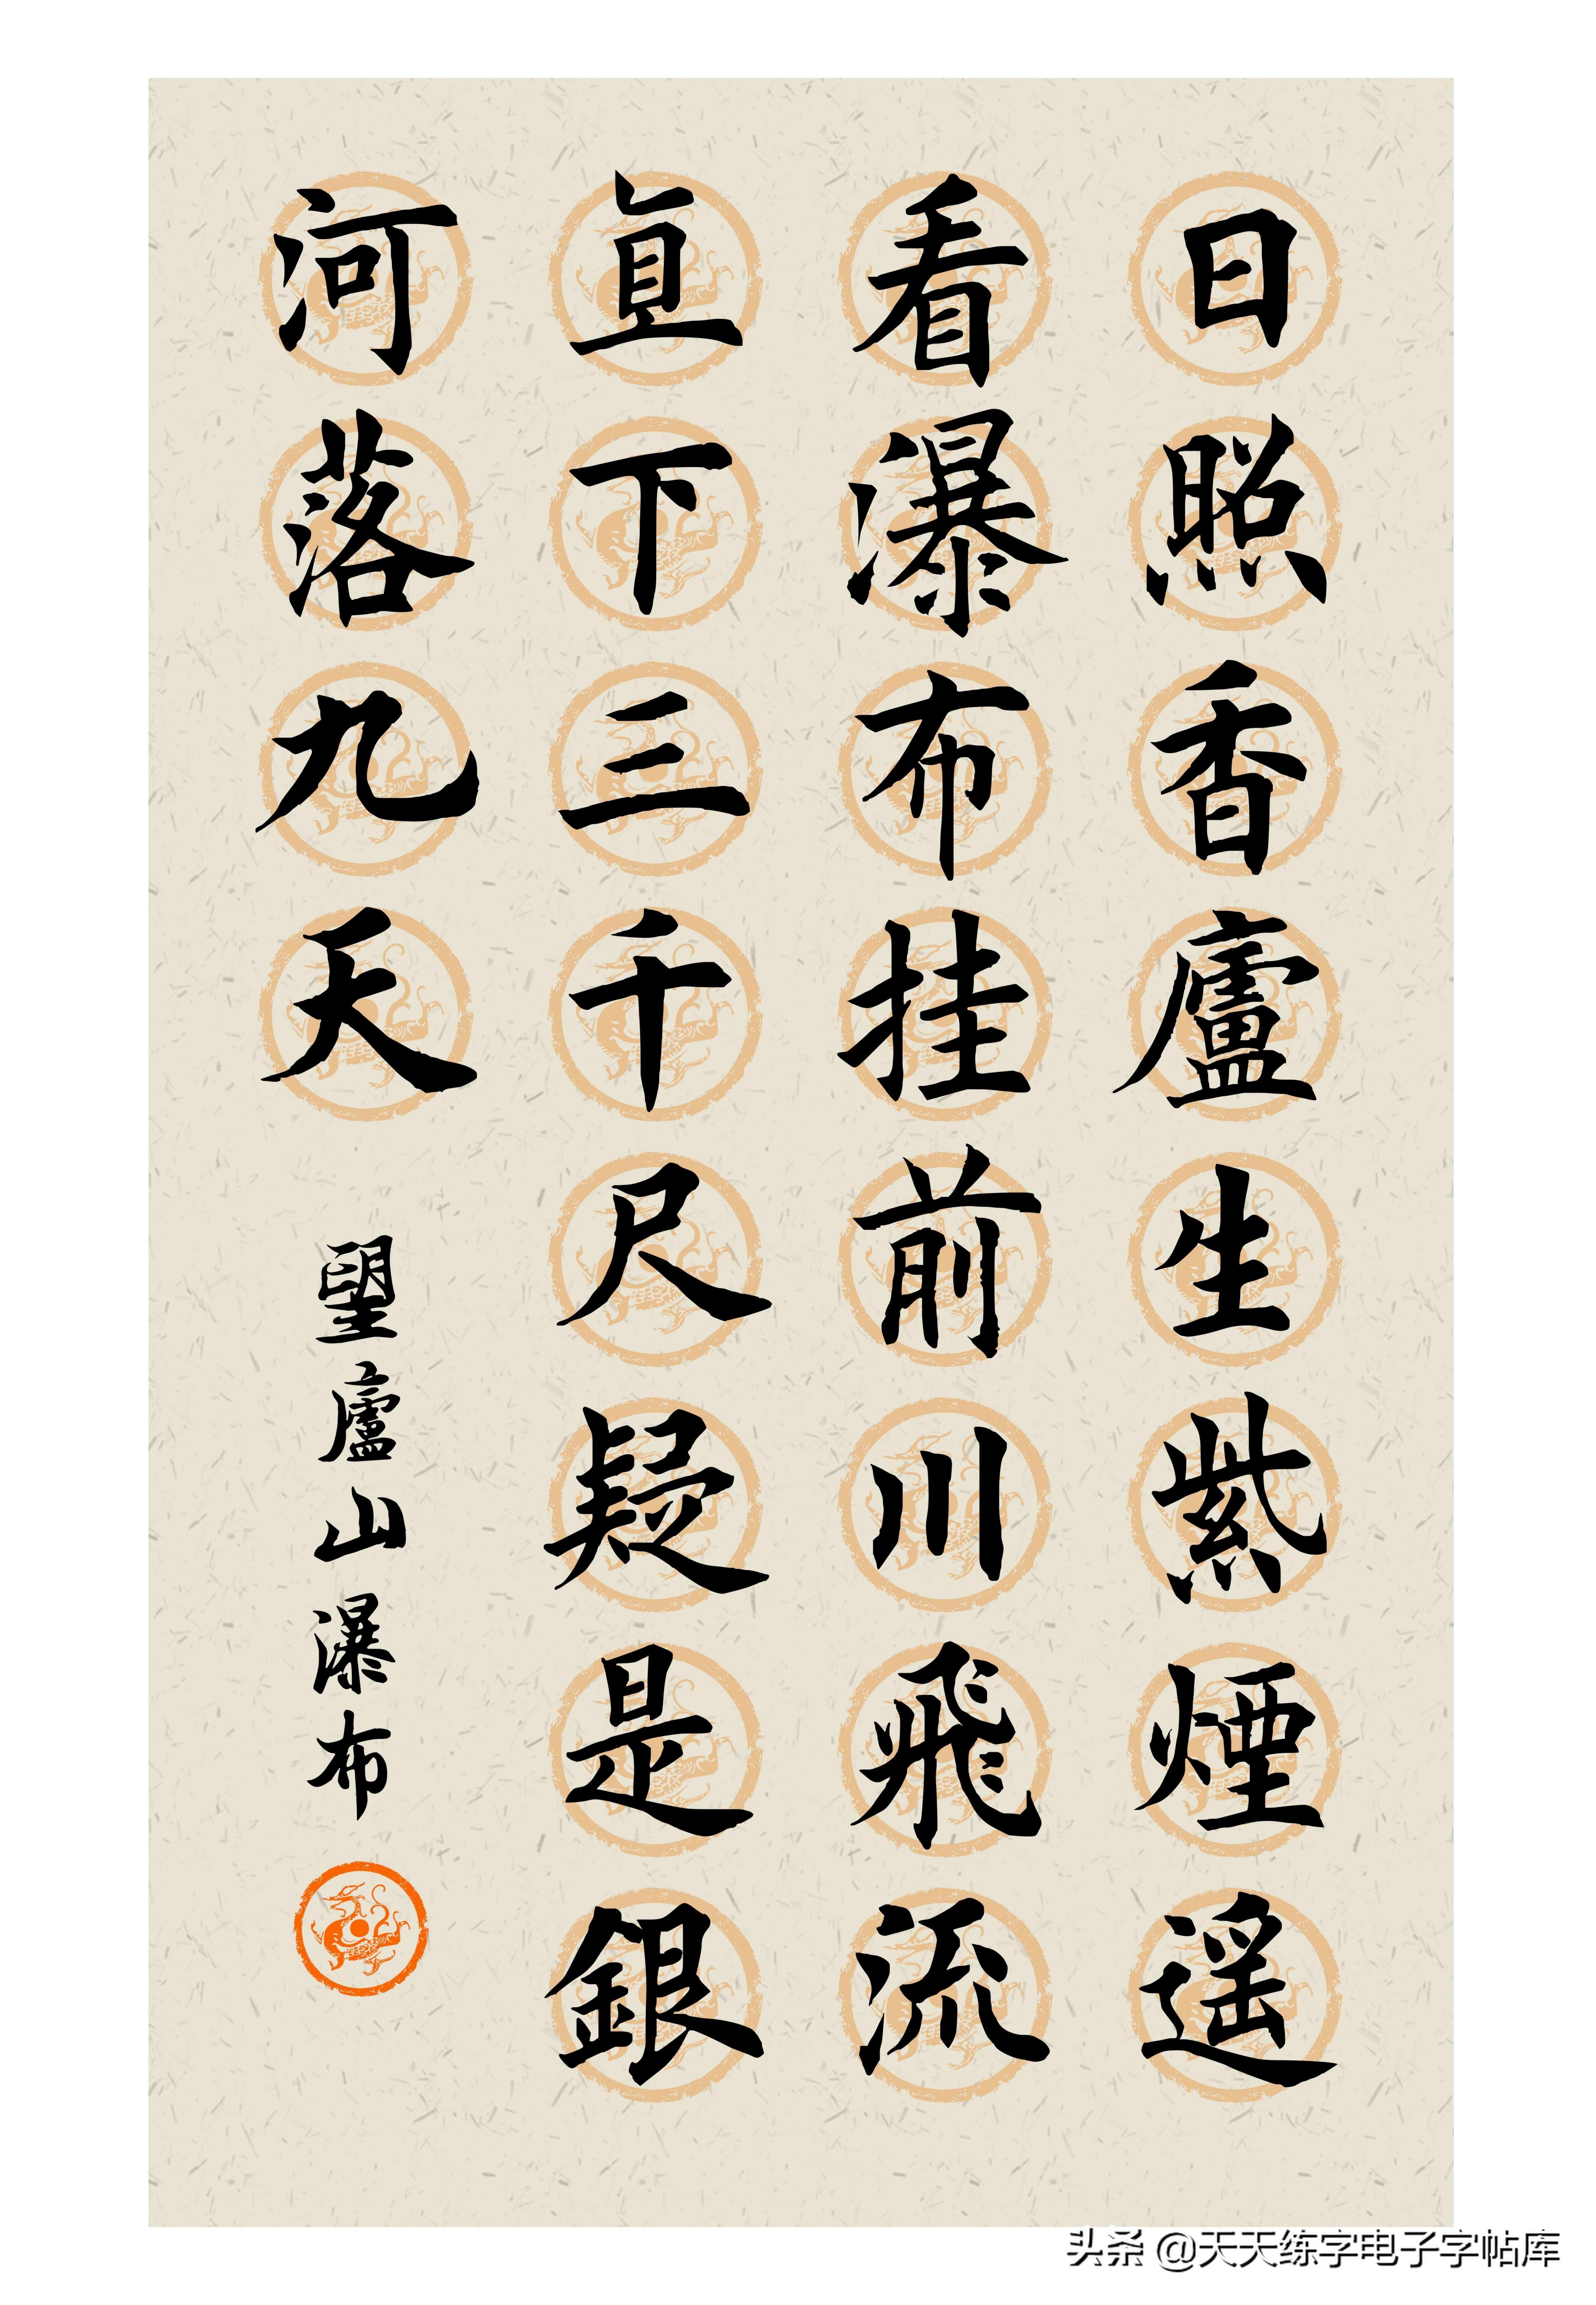 日照香廬生紫煙遥
看瀑布挂前川飛流
直下三千尺疑是銀
河落九天
望廬山瀑布
头条 @天天练字电子字帖库